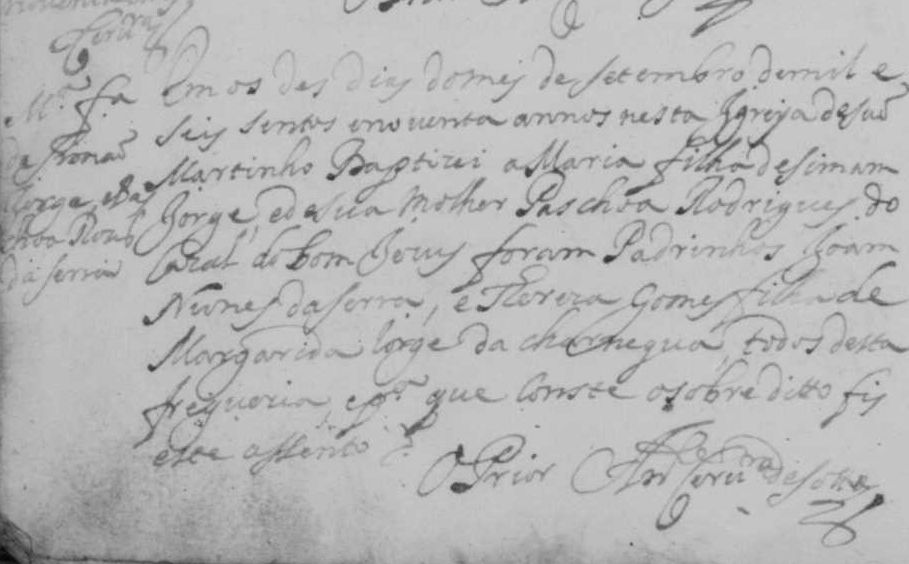 M.ª f.ª
de simaõ
Jorge, e Pas
choa Roiz
da serra
Em os des dias do mes de setembro de mil e
seis sentos e noventa annos nesta Igreja de saõ
Martinho Baptizei a Maria filha de simam
Jorge, e de sua molher Paschoa Rodrigues do
Cazal do bom Jesus foram Padrinhos Joam
Nunes da serra, e Thereza Gomes filha de
Margarida Jorge da charnequa, todos desta
freguezia, e p.ª que conste o sobre ditto fis
este assento
O Prior